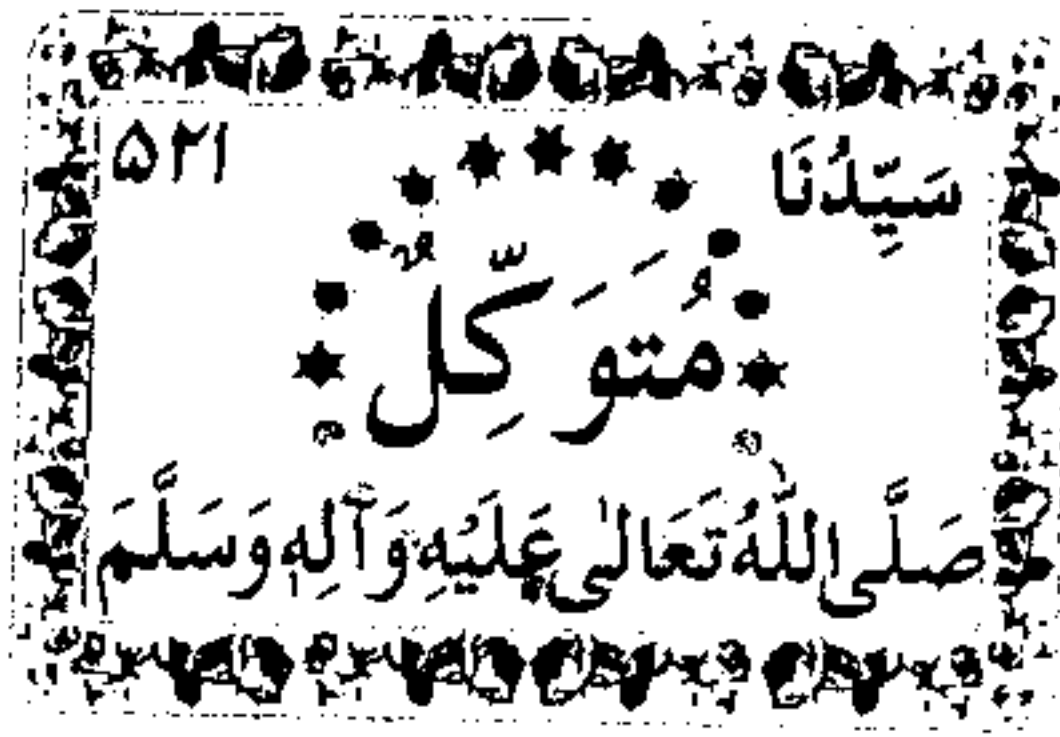 سَيِّدُنَا ۵۲۱
مُتَوَكِّلٌ
صَلَّى اللّٰهُ تَعَالٰى عَلَيْهِ وَآلِهٖ وَسَلَّمَ